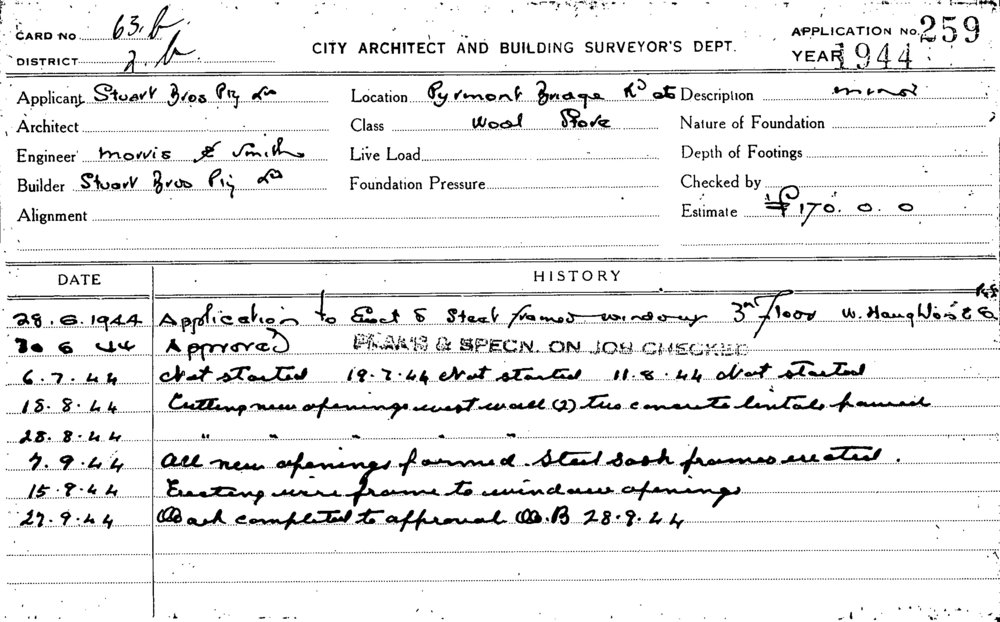 CARD NO 63.b
CITY ARCHITECT AND BUILDING SURVEYOR'S DEPT.
APPLICATION NO. 259
DISTRICT 2.b
YEAR 1944
Applicant Stuart Bros Pty Ld
Location Pyrmont Bridge Rd
Description minor
Architect
Class Wool Store
Nature of Foundation
Engineer Morris & Smith
Live Load
Depth of Footings
Builder Stuart Bros Pty Ld
Foundation Pressure
Checked by
Alignment
Estimate £170.0.0
DATE HISTORY
28.6.1944 Application to Erect 5 Steel framed windows 3rd floor W. Haughton & Co
30 6 44 Approved PLANS & SPECN. ON JOB CHECKED
6.7.44 Not started 19.7.44 Not started 11.8.44 Not started
18.8.44 Cutting new openings west wall (2) two concrete lintals poured
28.8.44 " " " " "
7.9.44 All new openings formed. Steel sash frames erected.
15.9.44 Erecting wire frame to window openings
27.9.44 Work completed to approval W.B 28.9.44